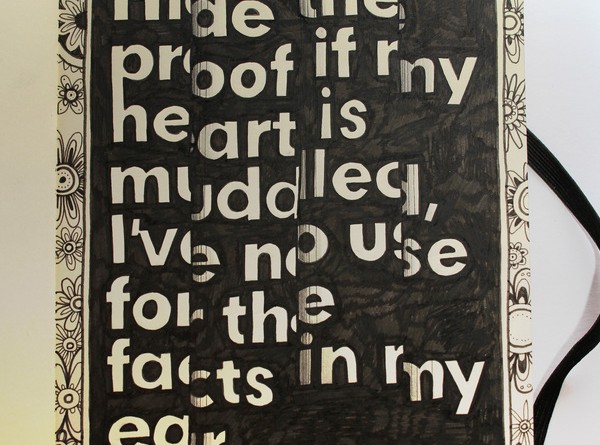 Hide the
proof if my
heart is
muddled,
I've no use
for the
facts in my
ear